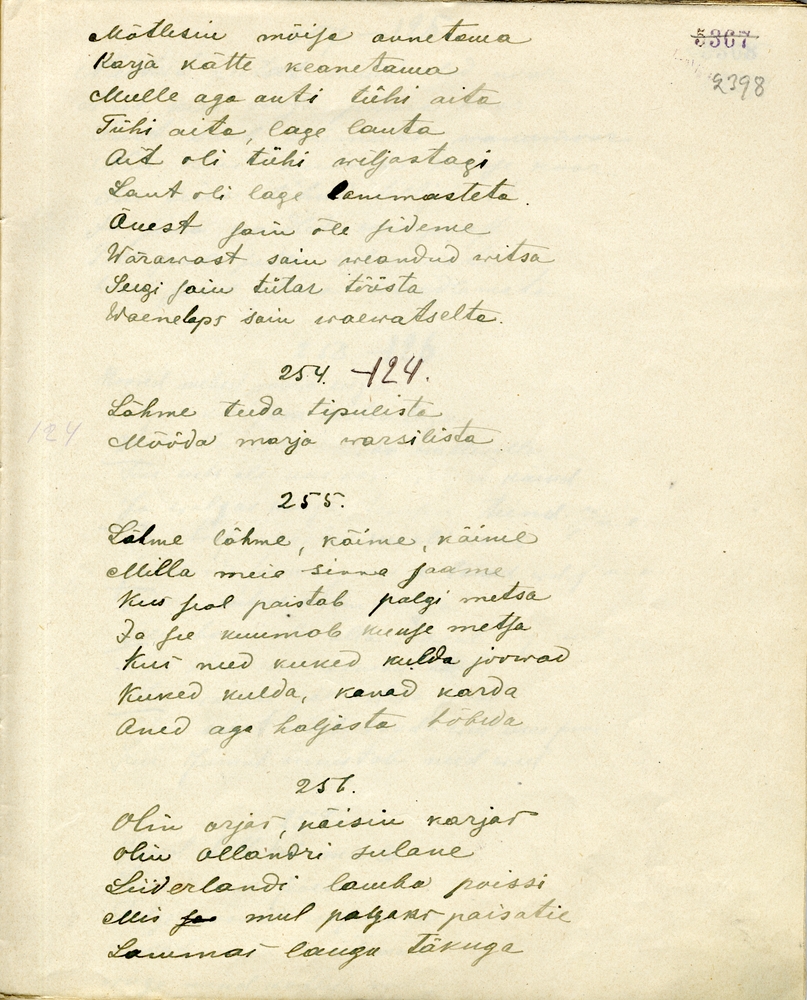 5367
2398
Mõtlesin mõisa annetama
Karja kätte keanetama
Mulle aga anti tühi aita
Tühi aita, lage lauta
Ait oli tühi wiljastagi
Laut oli lage lammasteta.
Õuest sain õle sideme
Wärawast sain weandud witsa
Seegi sain tütar töösta
Waenelaps sain waewatselta.
254. 124.
124
Lähme teeda tipulista
Mööda marja warsilista
255.
Lähme lähme, käime, käime
Milla meie sinna saame
Kus seal paistab palgi metsa
Ja see kuumab kuuse metsa
Kus need kuked kulda joowad
Kuked kulda, kanad karda
Aned aga haljasta hõbeda
256.
Olin orjas, käisin karjas
Olin Ollandri sulane
Liiderlandi lamba poissi
Mis mul palgaks paisatie
Lammas laugu täkuga